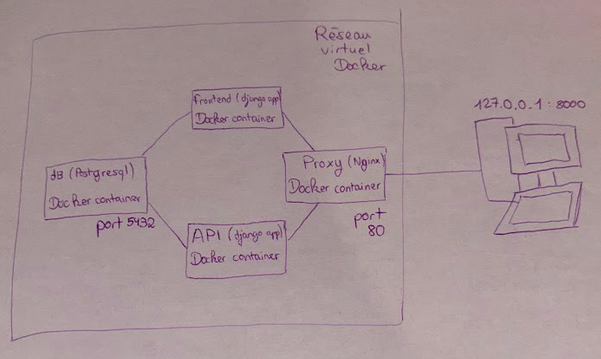 Réseau
virtuel
Docker
frontend (django app)
Docker container
127.0.0.1 : 8000
dB (Postgresql)
Docker container
port 5432
Proxy (Nginx)
Docker container
port
80
API (django app)
Docker container